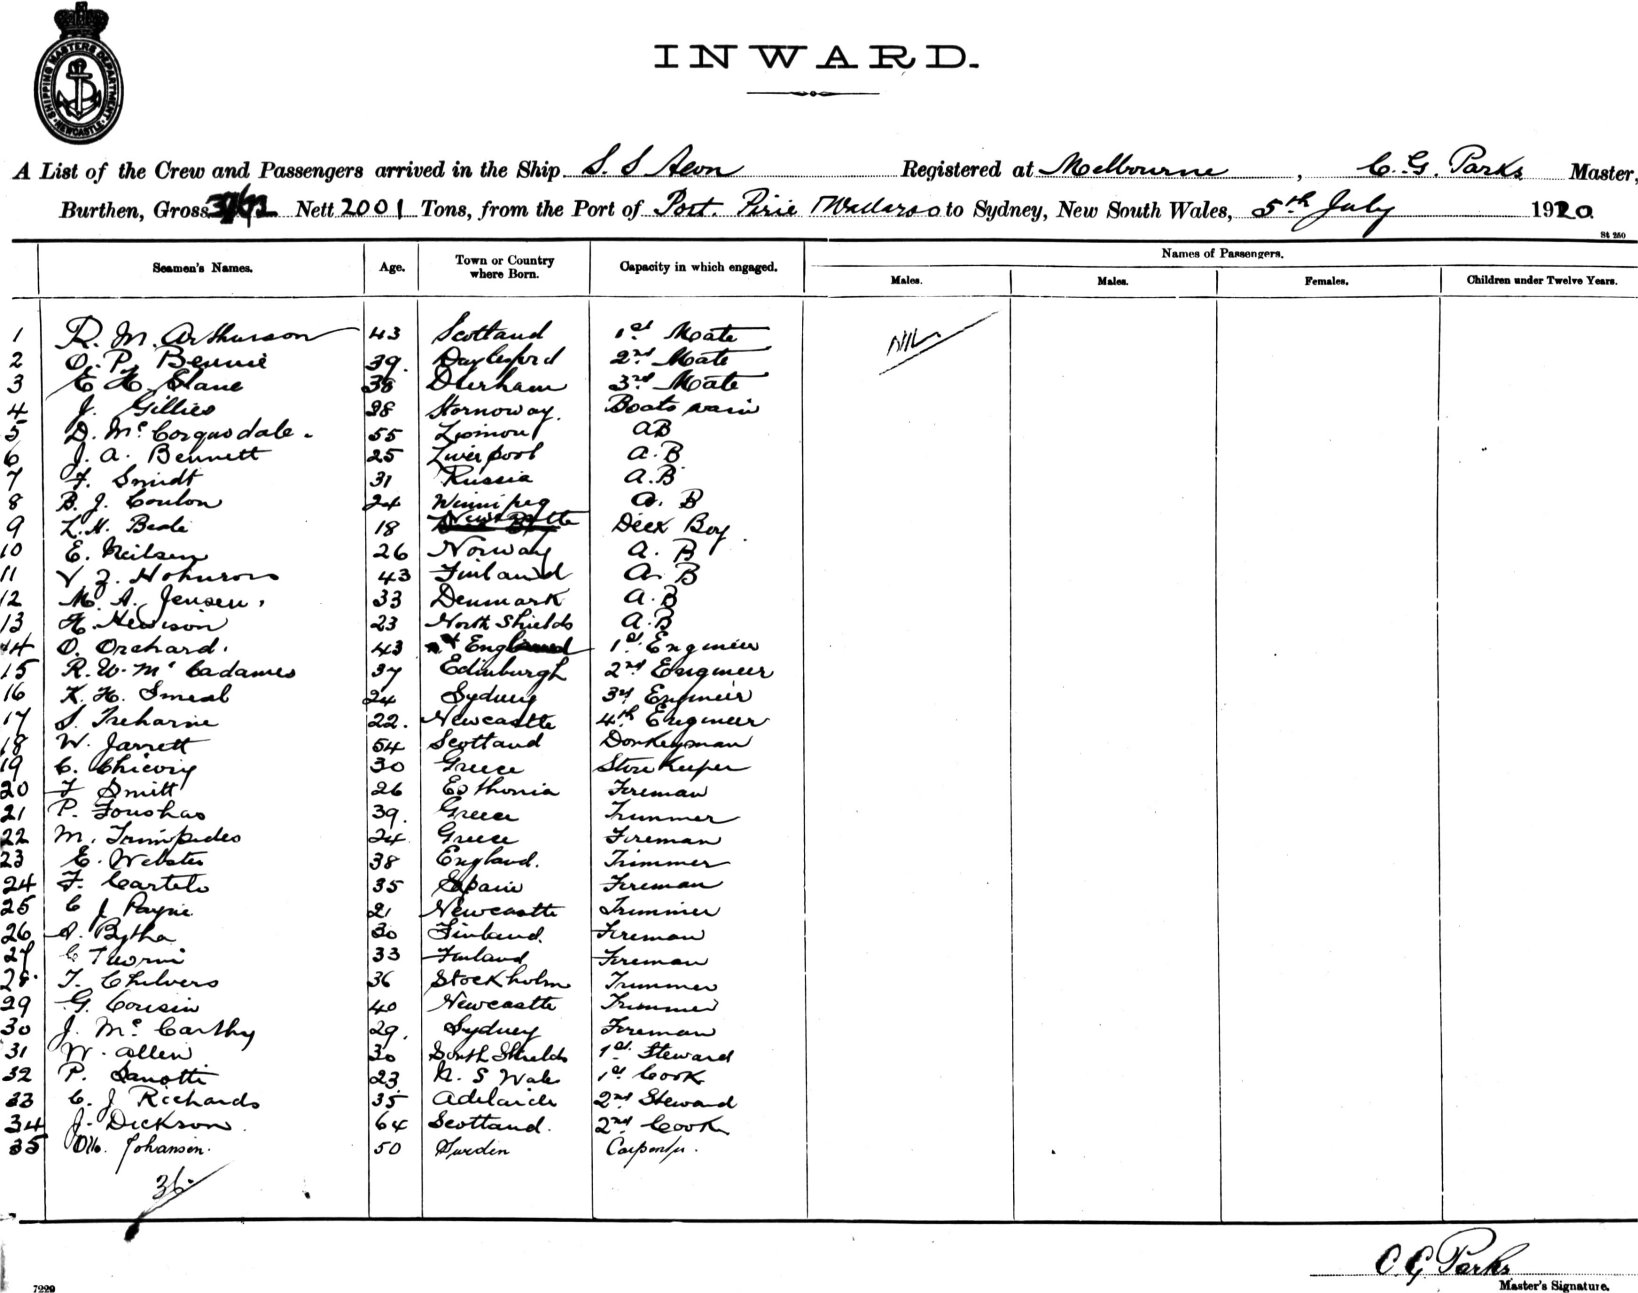 SHIPPING MASTERS DEPARTMENT
NEWCASTLE
INWARD.
A List of the Crew and Passengers arrived in the Ship S. S Aeon Registered at Melbourne, C. G. Parks Master,
Burthen, Gross Nett 2001 Tons, from the Port of Port. Pirie Wallaroo to Sydney, New South Wales, 5th July 1920
St 250
Seamen's Names. Age. Town or Country where Born. Capacity in which engaged. Names of Passengers.
Males. Males. Females. Children under Twelve Years.
1 R. M. Arthurson 43 Scotland 1st Mate NIL
2 O. P. Bennie 39. Daylesford 2nd Mate
3 E H. Slane 38 Durham 3rd Mate
4 J. Gillies 38 Stornoway. Boatswain
5 D. Mc Corquodale. 55 AB
6 J. A. Bennett 25 Liverpool A. B
7 F. Smidt 31 Russia A. B
8 B. J. Coulon 24 Winnipeg A. B
9 L. H. Beale 18 Newcastle Deck Boy.
10 E. Neilsen 26 Norway A. B
11 V Z. 43 Finland A. B
12 M. A. Jensen. 33 Denmark A. B
13 H. Hewison 23 North Shields A. B
14 O. Orchard. 43 England 1st Engineer
15 R. W. Mc Cadames 37 Edinburgh 2nd Engineer
16 K. H. Smeal 24 Sydney 3rd Engineer
17 S. Treharne 22. Newcastle 4th Engineer
18 W. Jarrett 54 Scotland Donkeyman
19 C. Chicory 30 Greece Store Keeper
20 F Smitt 26 Esthonia Fireman
21 P. Foushas 39. Greece Trimmer
22 M. 24 Greece Fireman
23 E. Webster 38 England. Trimmer
24 F. Castelo 35 Spain Fireman
25 C J Payne 21 Newcastle Trimmer
26 A. Bytha 30 Finland. Fireman
27 C 33 Finland Fireman
28. T. Chilvers 36 Stockholm Trimmer
29 G. Cousin 40 Newcastle Trimmer
30 J. Mc Carthy 29. Sydney Fireman
31 W. Allen 30 South Shields 1st. Steward
32 P. Zanotti 23. N. S Wales 1st Cook
33 C. J Richards 35 Adelaide 2nd Steward
34 J. Dickson. 64 Scotland. 2nd Cook
35 Otto. Johansen. 50 Sweden Carpenter.
36.
C. G Parks
Master's Signature.
7229